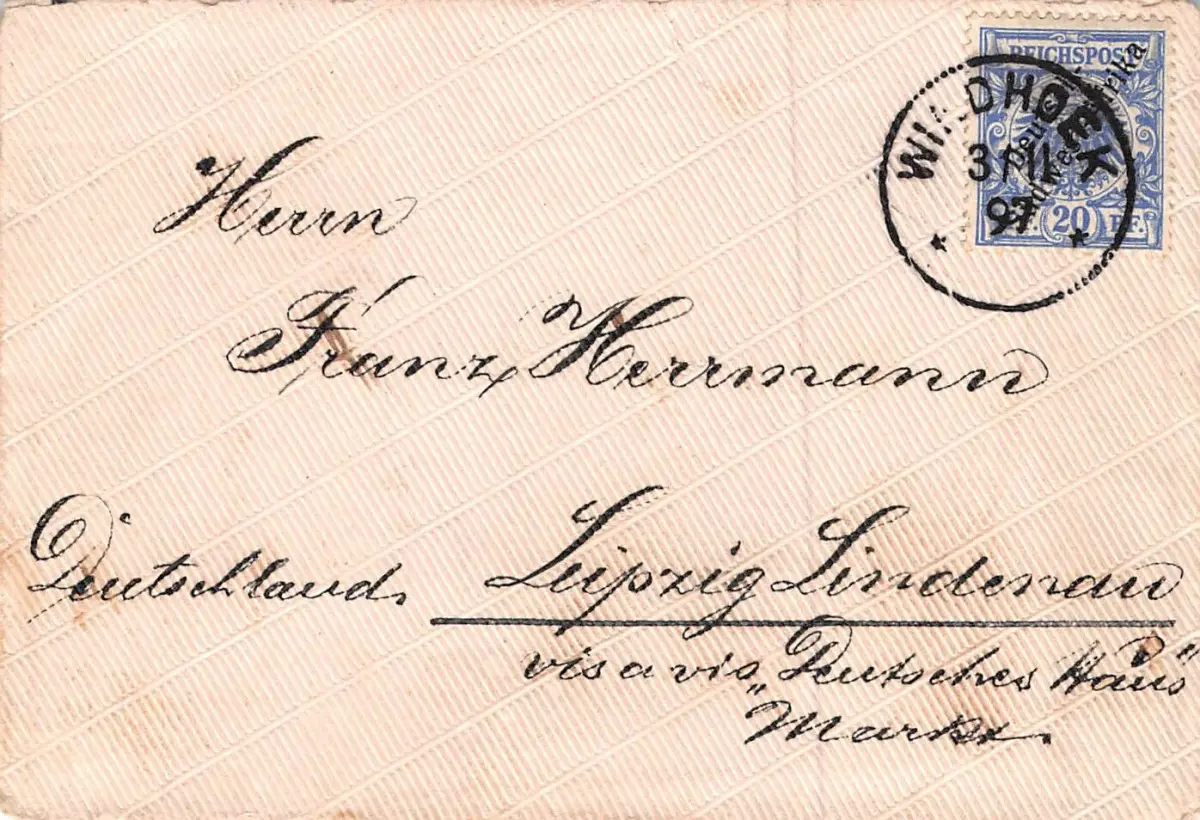 REICHSPOST
20 PF.
WINDHOEK
97
Herrn
Franz Herrmann
Deutschland.
Leipzig Lindenau
vis a vis „Deutsches Haus“
Markt.